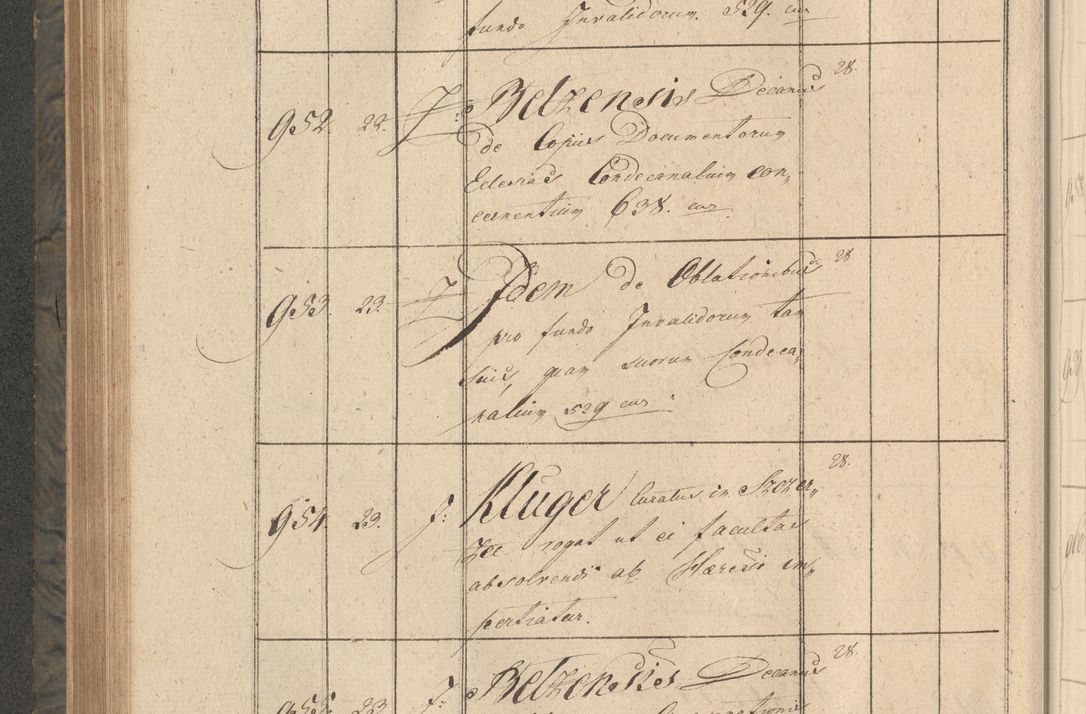 fundo Invalidorum. 529. eur
952. 23. J: Belzensis Decanus 28.
de Copiis Documentorum
Eclesias Condecanaluim con„
cernentium 638. eur.
953. 23. J Idem de Oblationibus 28
pro fundo Invalidorum tan
suis, quam suorum Condeca„
nalium 529 eur.
954. 23. J: Kluger Curatus in Szczer„ 28.
zec rogat ut ei facultas
absolvendi ab Hæresi im„
pertiatur.
955. 23 J: Belzensis Decanus 28.